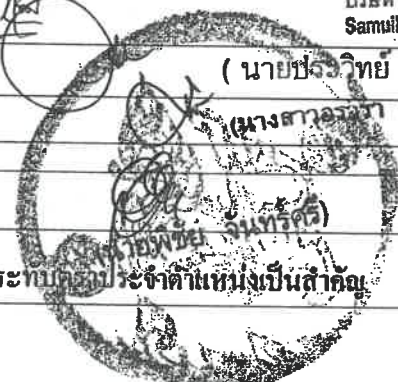 Samuil
( นายประวิทย์
(นางสาวอรวรา
(นายพิชัย จันทร์ศรี)
ระทับตราประจำตำแหน่งเป็นสำคัญ